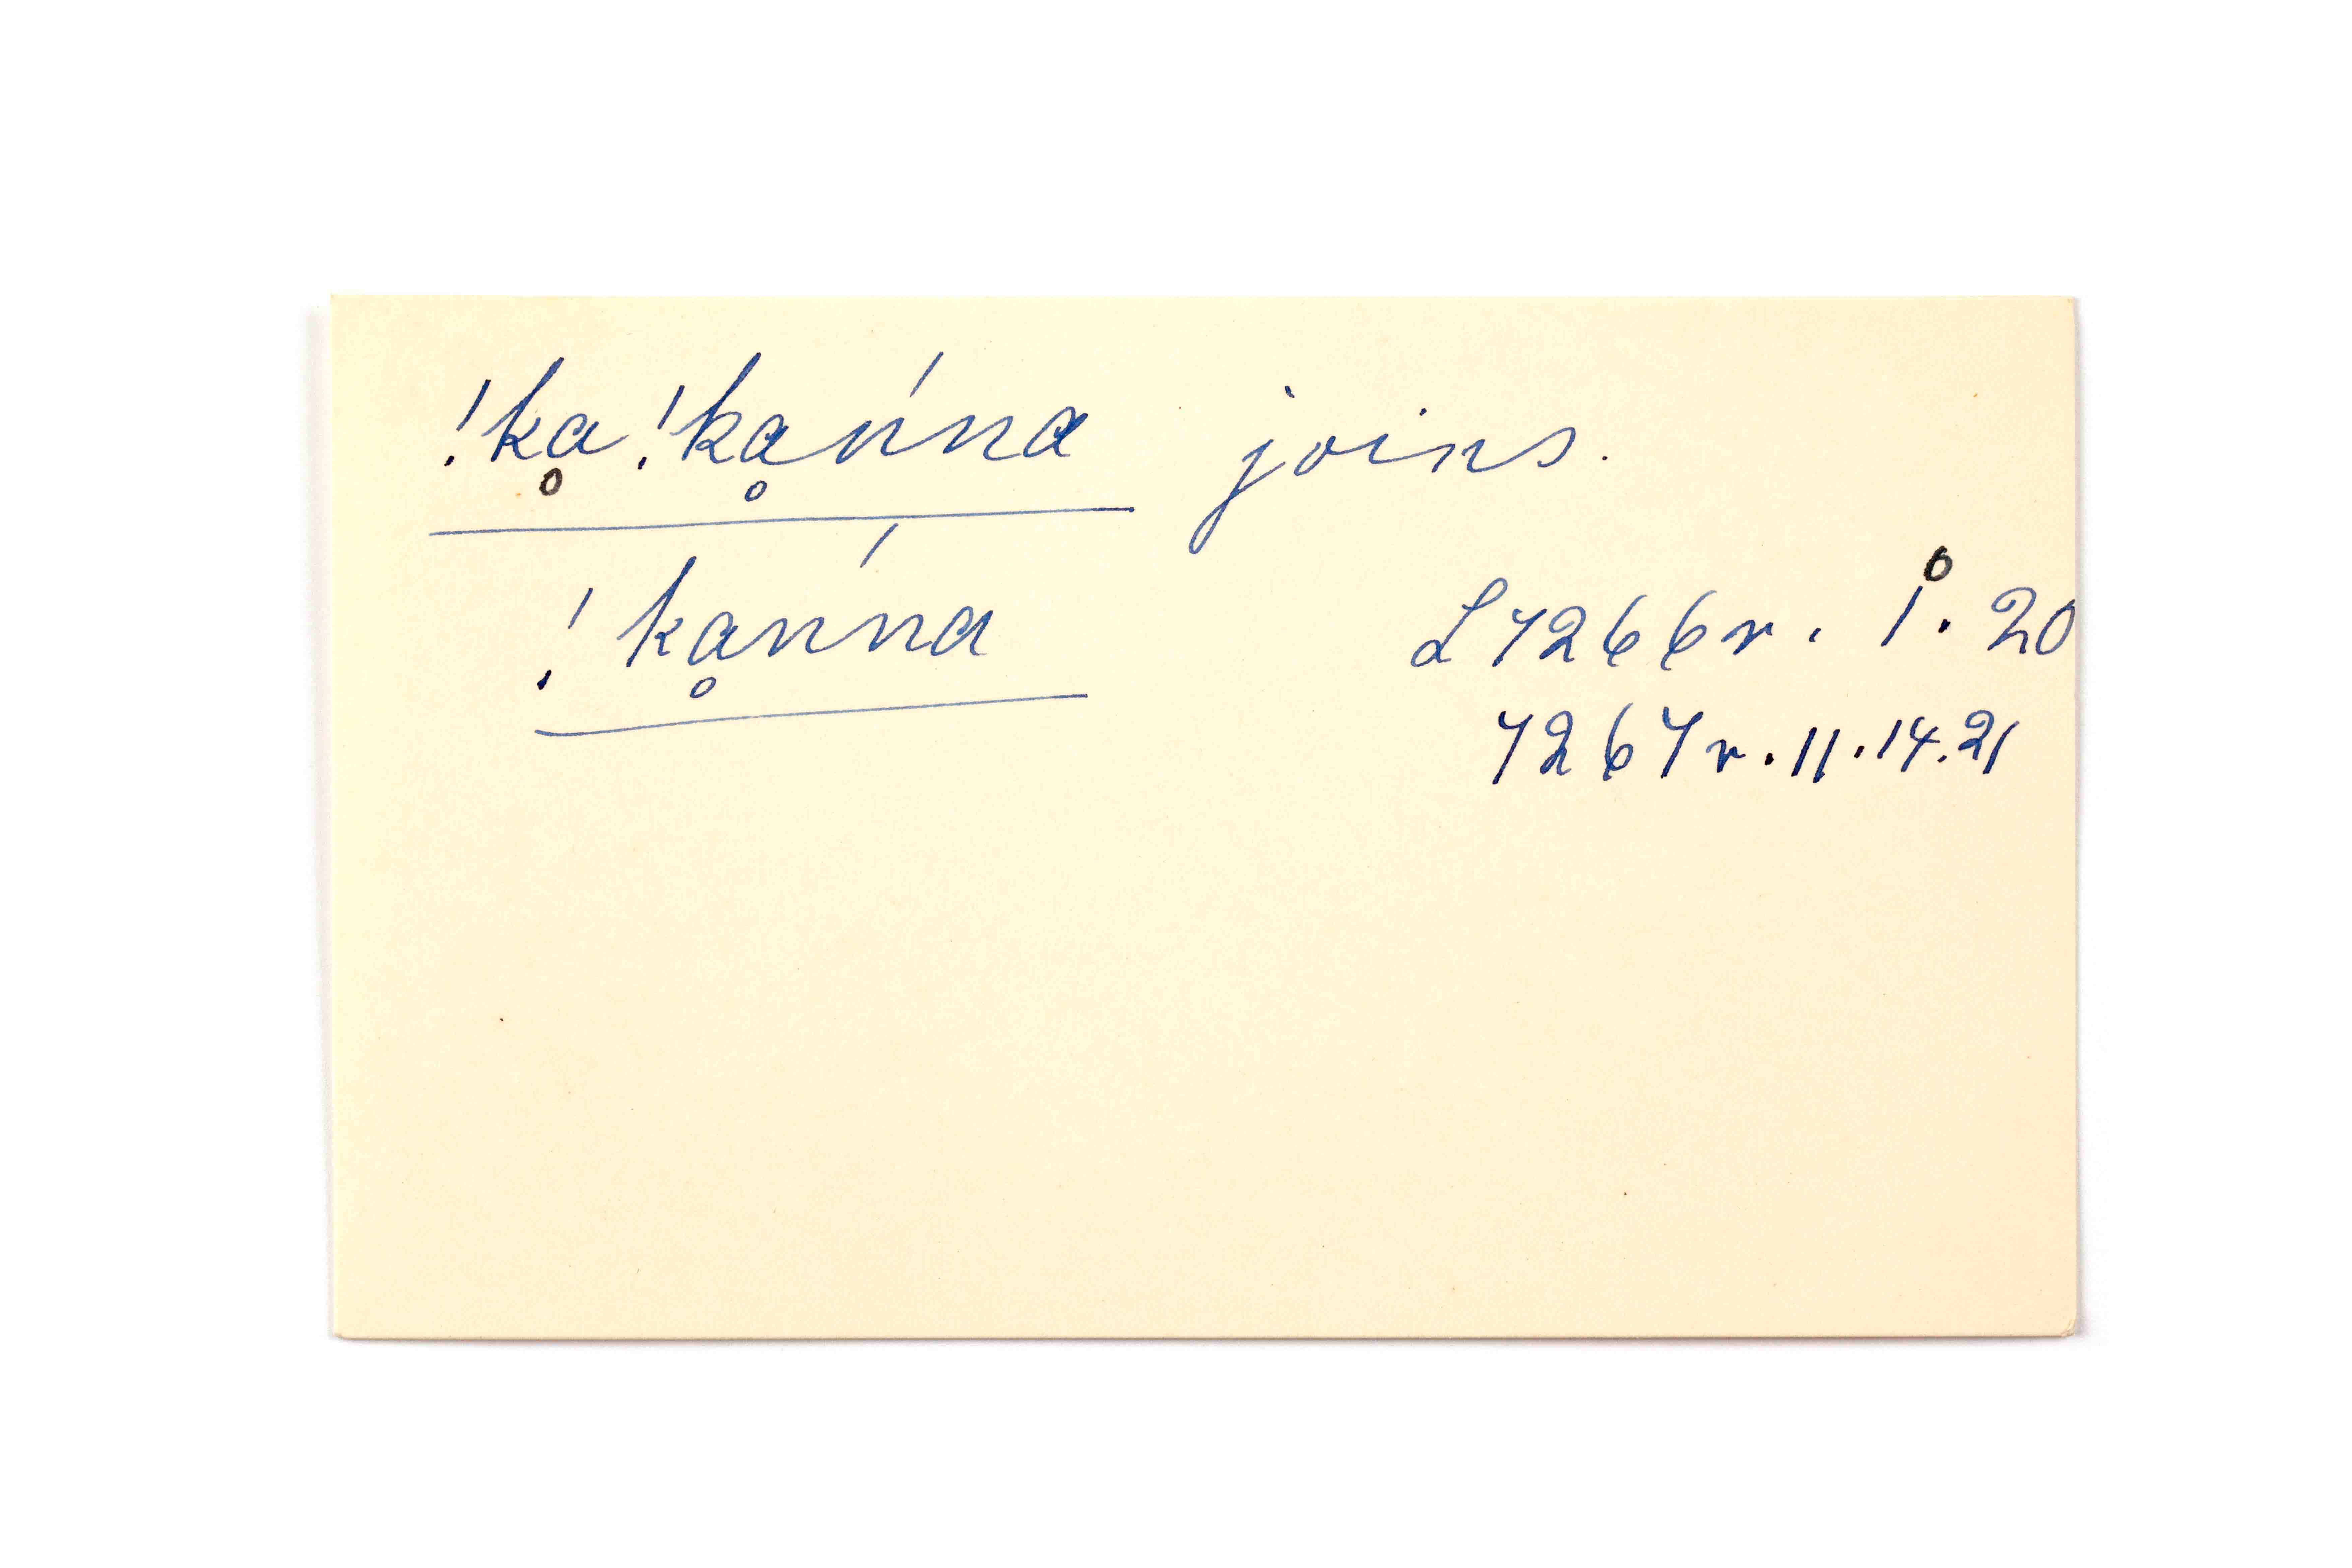 !kḁ!kḁńna joins.
!kḁńna
L7266r. 1̊. 20
7267r. 11. 14. 21